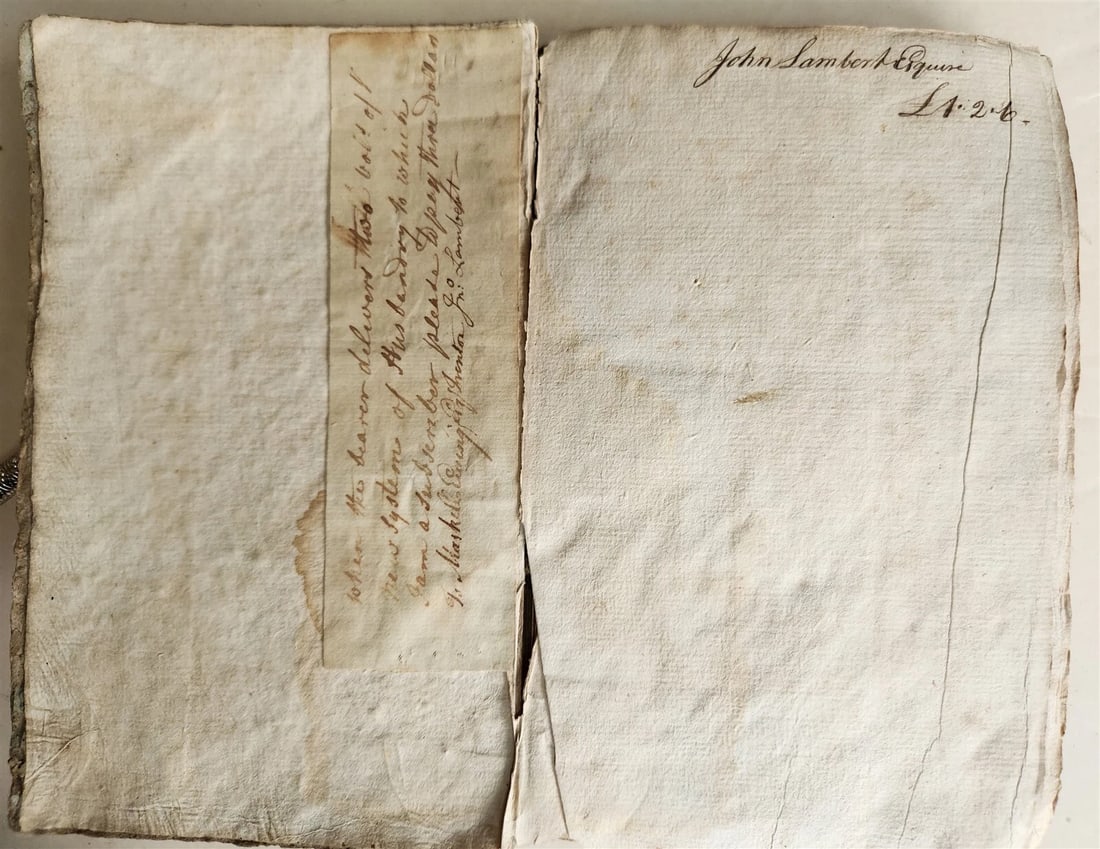 when the bearer delivers two vols of
new system of Husbandry to which
I am a subscriber please to pay three dollars
Jno Lambert
Maskell Ewing Esq Trenton
John Lambert Esquire
£1.2.6.